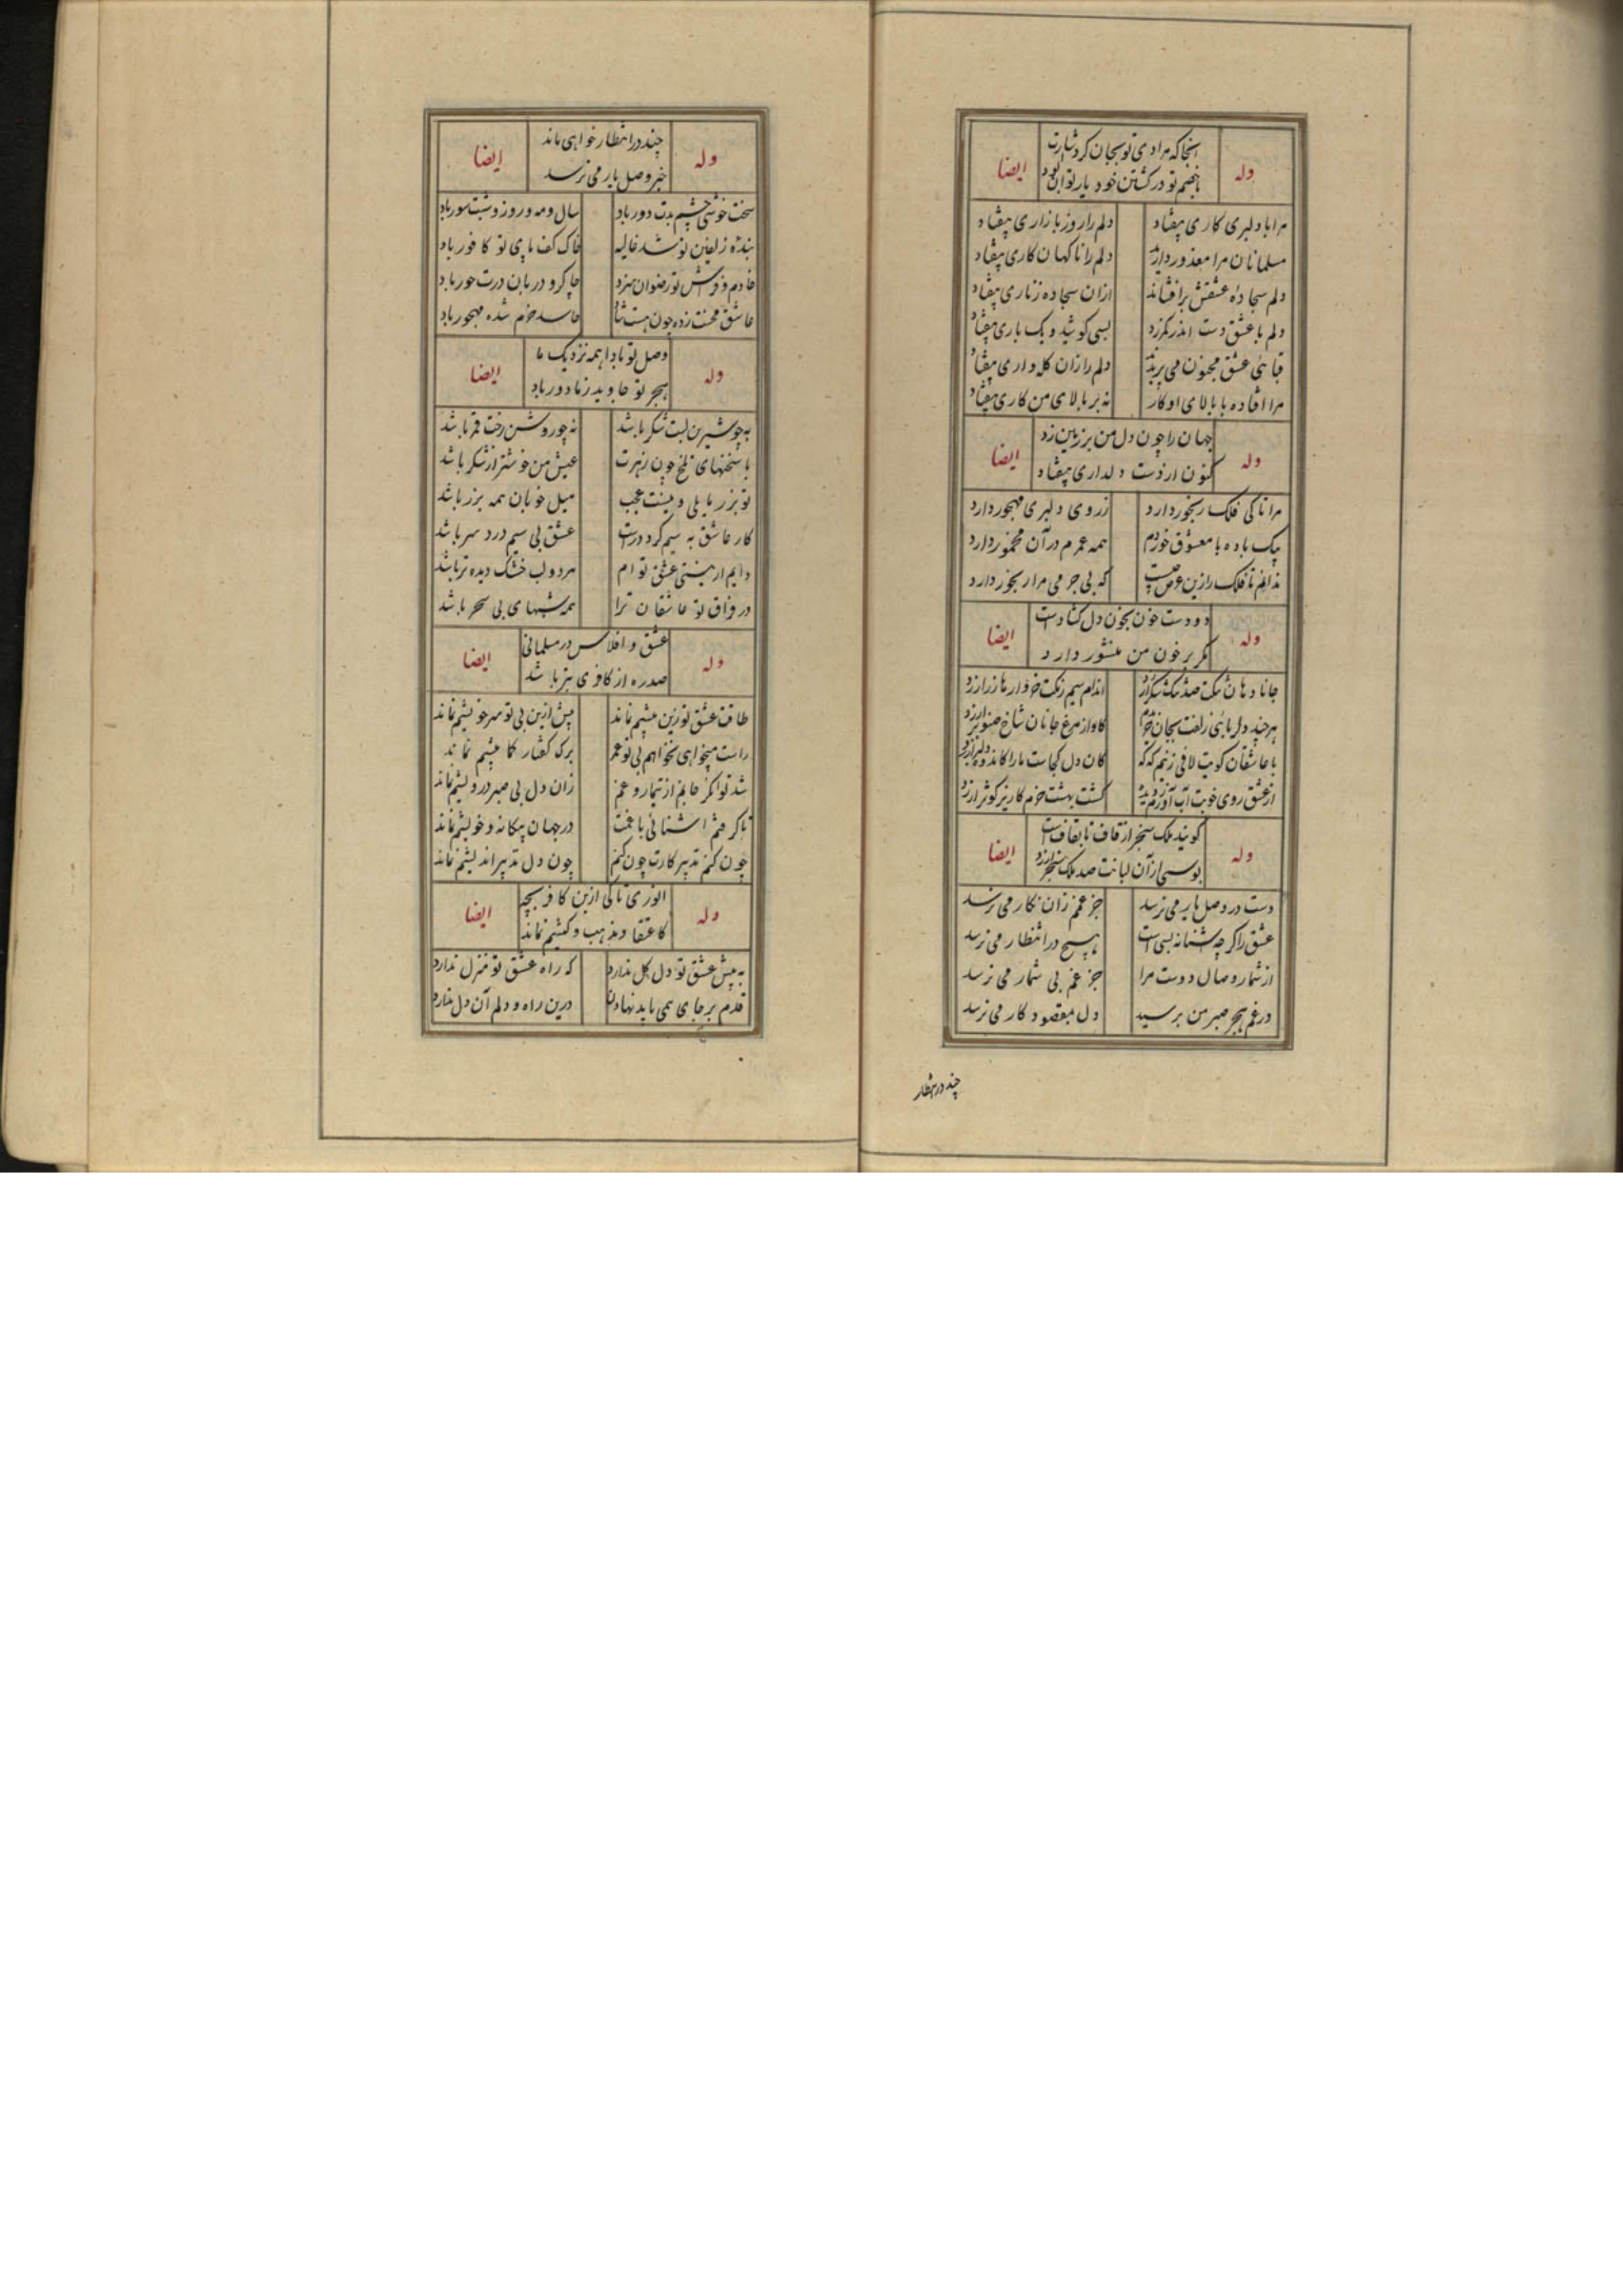 وله
اینجا که مرادی تو بجان کرد شارت
ایضا
با خصم تو در کشتن خود یار توان بود
مرا با دلبری کاری بیفتاد
دلم را روز بازاری بیفتاد
مسلمانان مرا معذور دارید
دلم را ناکهان کاری بیفتاد
دلم سجاده عشقش برافشاند
ازان سجاده زناری بیفتاد
دلم با عشق دست اندر کمر زد
بسی کوشید و یک باری بیفتاد
قبائی عشق مجنون می بریدند
دلم را زان کله واری بیفتاد
مرا افتاده با بالای او کار
نه بر بالای من کاری بیفتاد
وله
جهان را چون دل من بر زمین زد
ایضا
کنون از دست دلداری بیفتاد
مرا تا کی فلک رنجور دارد
ز روی دلبری مهجور دارد
بیک باده با معشوق خوردم
همه عمرم در آن مخمور دارد
ندانم تا فلک را زین غرض چیست
که بی جرمی مرا رنجور دارد
وله
دو دست خون بخون دل کشادست
ایضا
مگر بر خون من منشور دارد
جانا دهان تنگت صد تنگ شکر ارزد
اندام سیم رنگت خروارها زر ارزد
هر چند دلربائی زلفت بجان خریدم
کاواز مرغ جانان شاخ صنوبر ارزد
با عاشقان کویت لافی زنیم که که
کان دل کجاست ما را کاندوه دلبر ارزد
از عشق روی خوبت آب آورم ز دیده
کشت بهشت خرم کاریز کوثر ارزد
وله
کویند ملک سنجر از قاف تا بقافست
ایضا
بوسی از آن لبانت صد ملک سنجر ارزد
دست در وصل یار می نرسد
جز غمم زان نکار می نرسد
عشق را کر چه آستانه بسی است
هیچ در انتظار می نرسد
از شمار وصال دوست مرا
جز غم بی شمار می نرسد
در غم هجر صبر من برسید
دل بمقصود کار می نرسد
چند در انتظار
وله
چند در انتظار خواهی ماند
ایضا
خبر وصل یار می نرسد
سخت خوشی چشم بدت دور باد
سال و مه و روز و شبت سور باد
بنده زلفین تو شد غالیه
خاک کف پای تو کافور باد
خادم و فراش تو رضوان سزد
چاکر و دربان درت حور باد
عاشق محنت زده چون هست شاد
حاسد خرم شده مهجور باد
وله
وصل تو بادا همه نزدیک ما
ایضا
هجر تو جاوید ز ما دور باد
نه چو شیرین لبت شکر باشد
نه چو روشن رخت قمر باشد
با سخنهای تلخ چون زهرت
عیش من خوشتر از شکر باشد
تو بزر مایلی و نیست عجب
میل خوبان همه بزر باشد
کار عاشق به سیم کردد راست
عشق بی سیم درد سر باشد
دایم از نیستی عشق توام
مرد و لب خشک دیده تر باشد
در فراق تو عاشقان ترا
همه شبهای بی سحر باشد
وله
عشق و افلاس در مسلمانی
ایضا
صدره از کافری بتر باشد
طاقت عشق تو زین بیشم نماند
بیش ازین بی تو سر خویشم نماند
راست میخواهی نخواهم بی تو عمر
برک کفتار کما بیشم نماند
شد توانکر جانم از تیمار و غم
زان دل بی صبر درویشم نماند
تا کرفتم آشنائی با غمت
در جهان بیکانه و خویشم نماند
چون کنم تدبیر کارت چون کنم
چون دل تدبیر اندیشم نماند
وله
انوری تا کی ازین کافر بچه
ایضا
کاعتقاد و مذهب و کیشم نماند
به پیش عشق تو دل کل ندارد
که راه عشق تو منزل ندارد
قدم بر جای می باید نهادن
درین راه و دلم آن دل ندارد